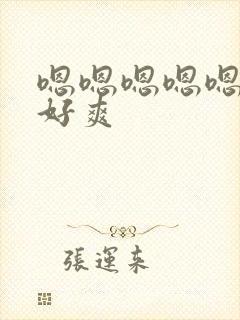 嗯嗯嗯嗯嗯
好爽
張運来